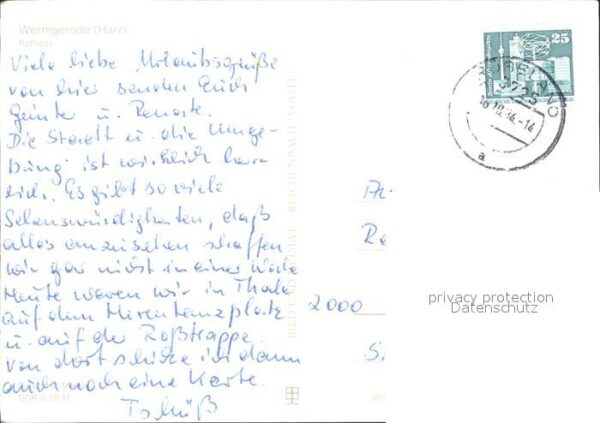 Wernigerode (Harz)
Rathaus
Viele liebe Urlaubsgrüße
von hier senden Euch
Günter u. Renate.
Die Stadt u. die Umge-
bung ist wirklich herr-
lich. Es gibt so viele
Sehenswürdigkeiten, daß
alles anzusehen schaffen
wir gar nicht in einer Woche
Heute waren wir in Thale
auf dem Hexentanzplatz
u. auf der Roßtrappe
von dort schicke ich dann
auch noch eine Karte.
Tschüß
DDR 0,20 M
BILD UND HEIMAT REICHENBACH
25
RÜBELAND
3725
a
2000
privacy protection
Datenschutz